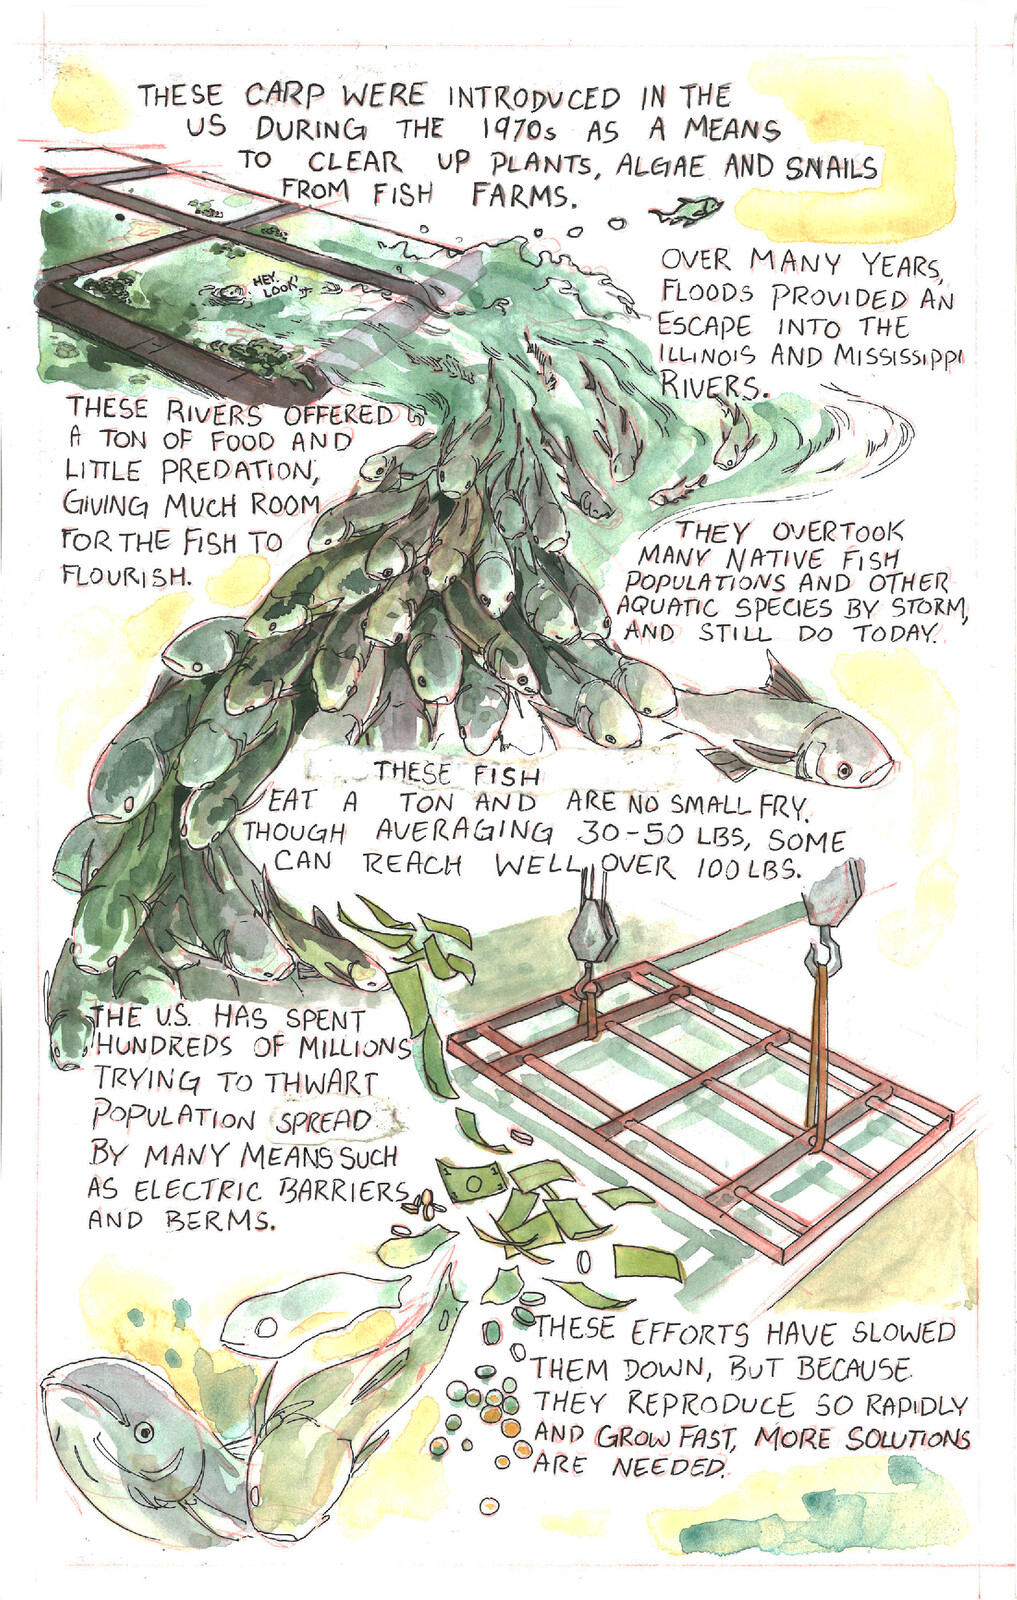 THESE CARP WERE INTRODUCED IN THE
US DURING THE 1970s AS A MEANS
TO CLEAR UP PLANTS, ALGAE AND SNAILS
FROM FISH FARMS.
HEY,
LOOK
OVER MANY YEARS,
FLOODS PROVIDED AN
ESCAPE INTO THE
ILLINOIS AND MISSISSIPPI
RIVERS.
THESE RIVERS OFFERED
A TON OF FOOD AND
LITTLE PREDATION,
GIVING MUCH ROOM
FOR THE FISH TO
FLOURISH.
THEY OVERTOOK
MANY NATIVE FISH
POPULATIONS AND OTHER
AQUATIC SPECIES BY STORM,
AND STILL DO TODAY.
THESE FISH
EAT A TON AND ARE NO SMALL FRY.
THOUGH AVERAGING 30-50 LBS, SOME
CAN REACH WELL OVER 100 LBS.
THE U.S. HAS SPENT
HUNDREDS OF MILLIONS
TRYING TO THWART
POPULATION SPREAD
BY MANY MEANS SUCH
AS ELECTRIC BARRIERS
AND BERMS.
THESE EFFORTS HAVE SLOWED
THEM DOWN, BUT BECAUSE
THEY REPRODUCE SO RAPIDLY
AND GROW FAST, MORE SOLUTIONS
ARE NEEDED.